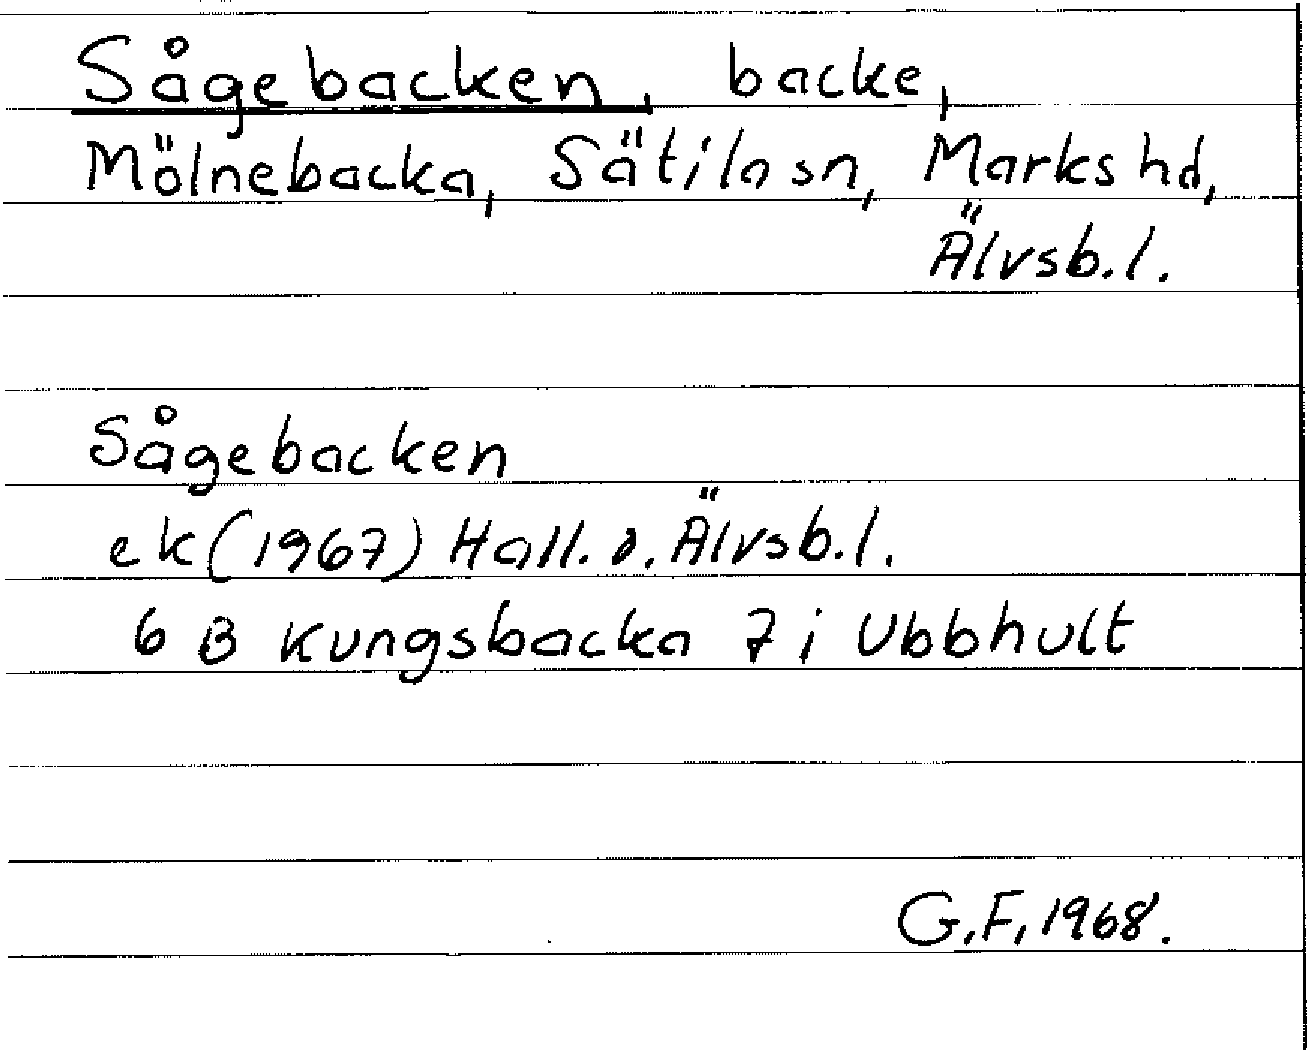 Sågebacken, backe,
Mölnebacka, Sätila sn, Marks hd,
Älvsb. l.
Sågebacken
ek (1967) Hall. o. Älvsb. l.
6 B Kungsbacka 7 i Ubbhult
G. F, 1968.